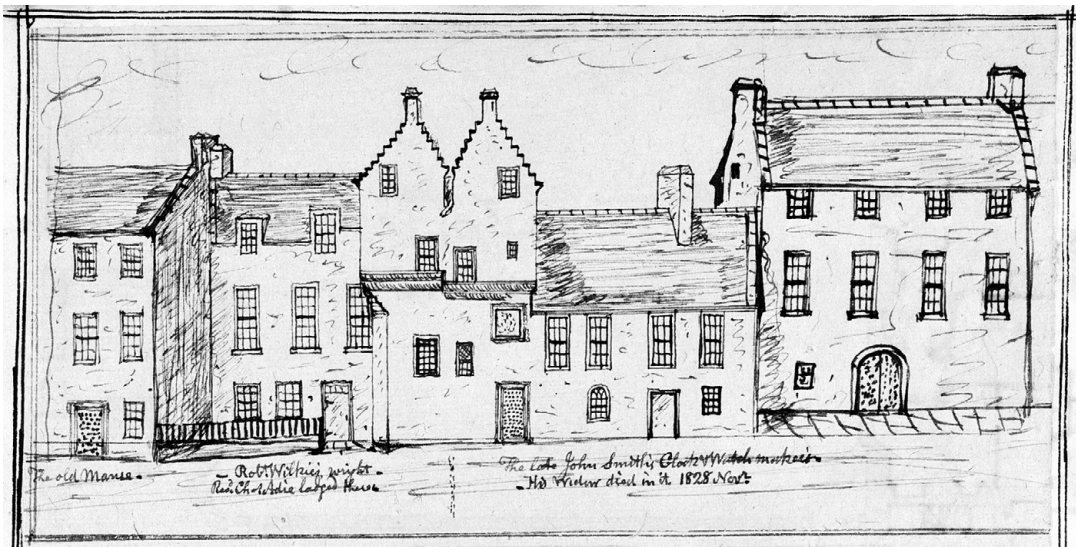 The old Manse.
Robt. Wilkie's wright.
Revd. Chas. Adie lodged there.
The late John Smith's Clock & Watch maker.
His Widow died in it 1828 Novr.